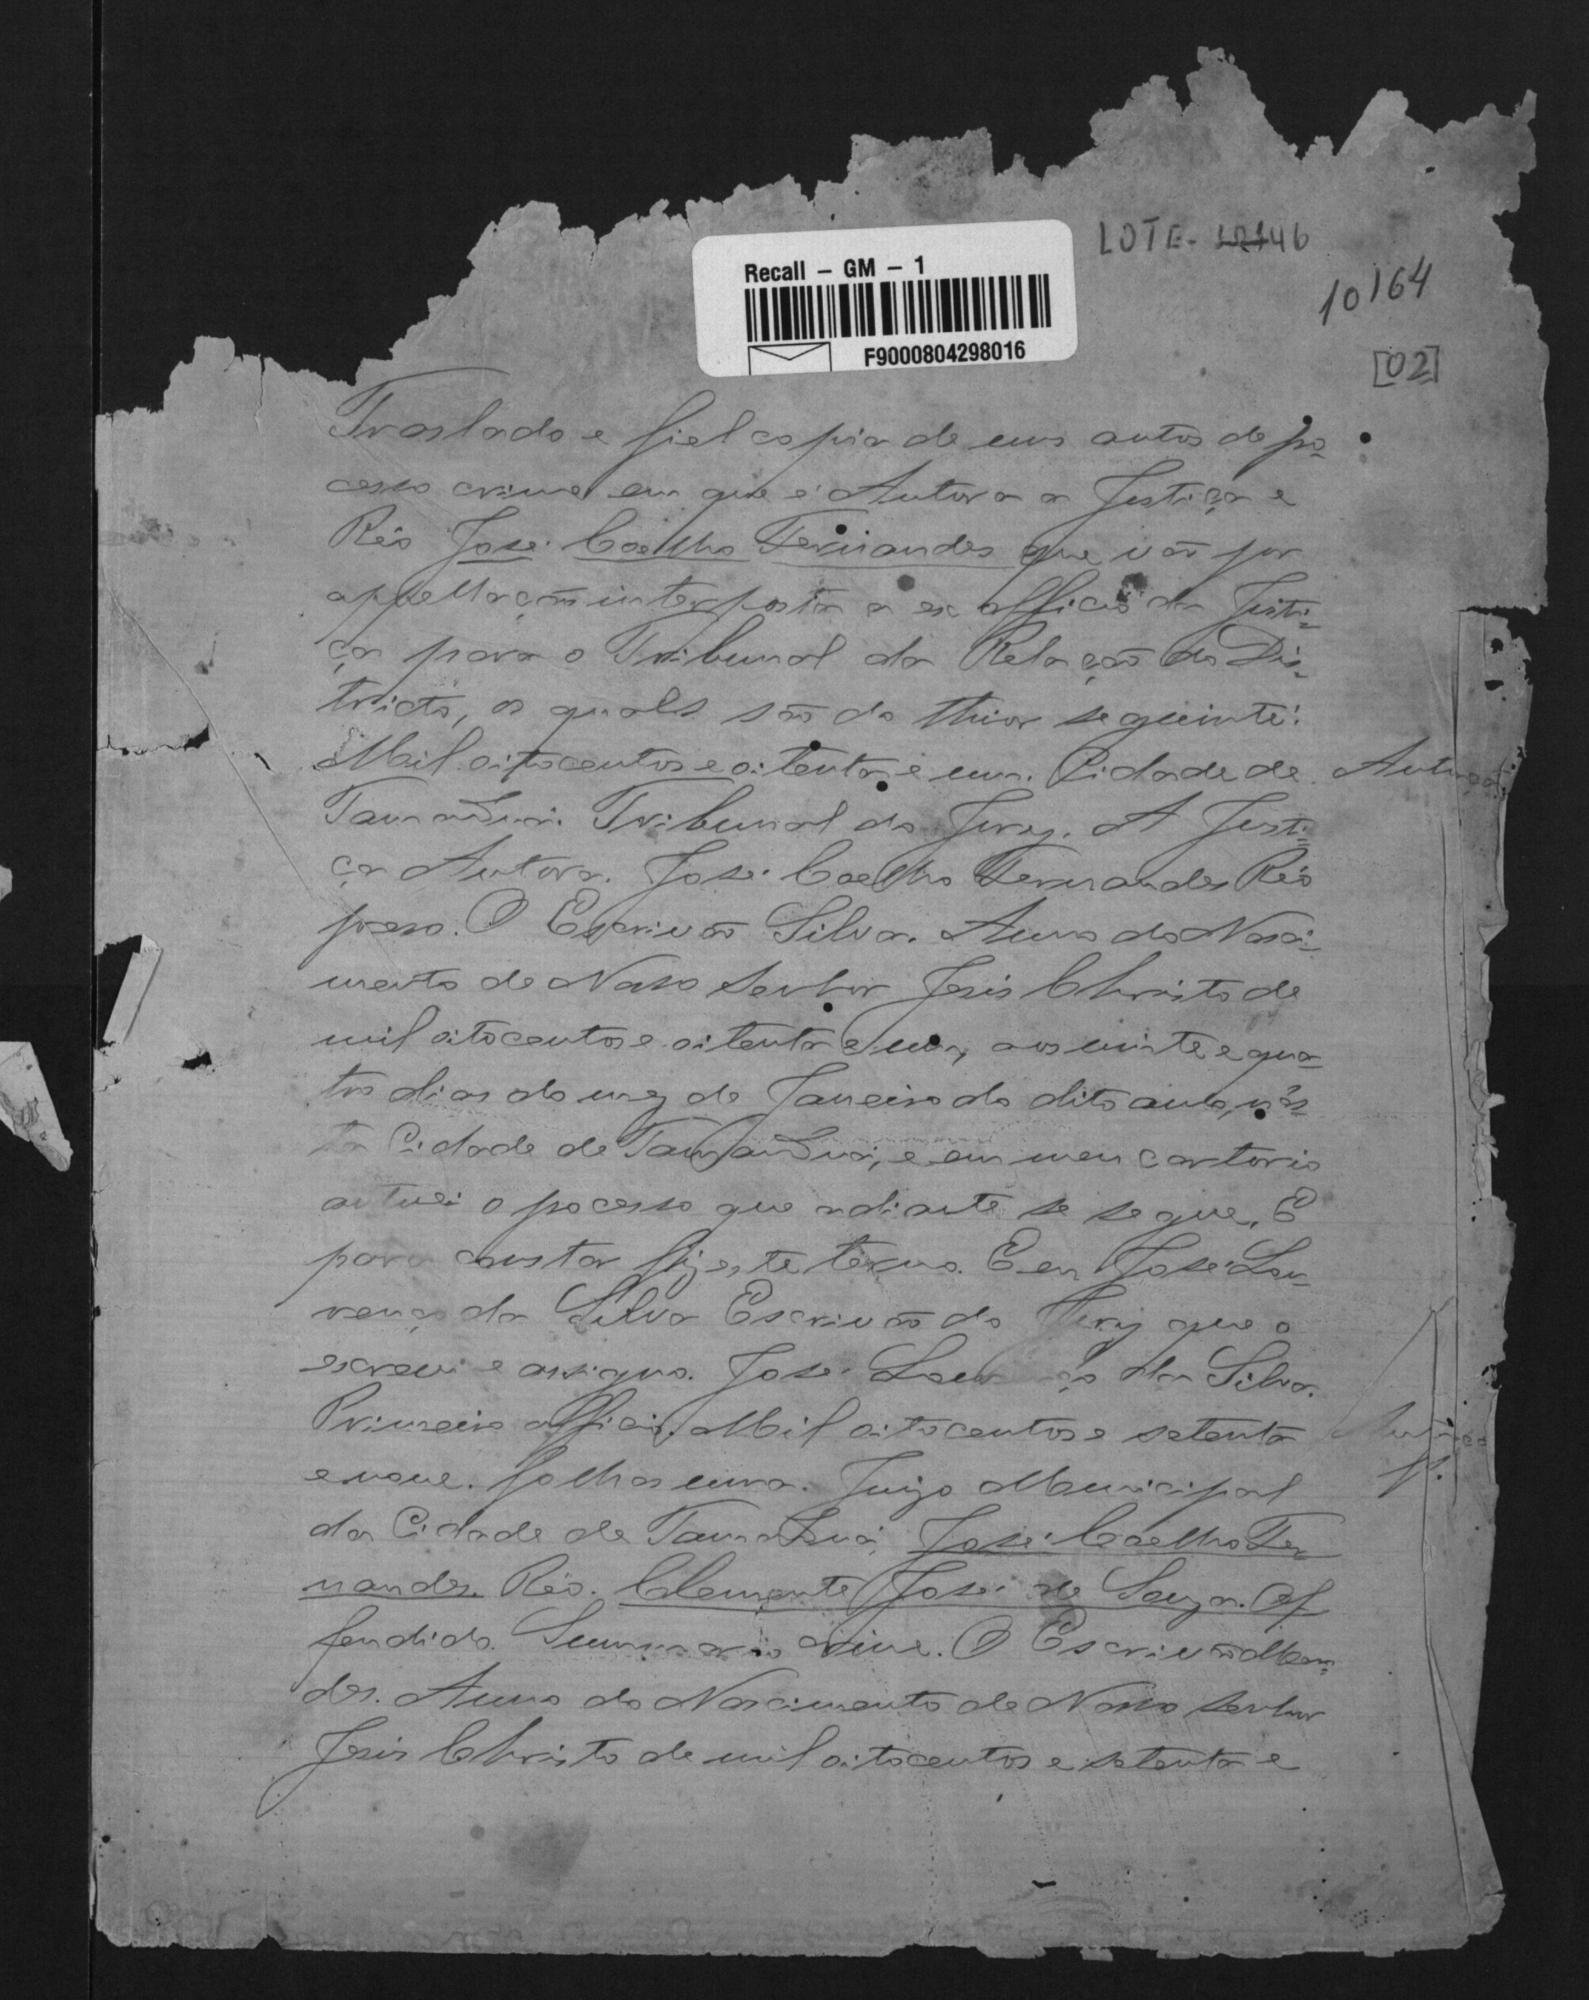 LOTE- 46
10164
[02]
Recall – GM – 1
F9000804298016
Traslado e fiel copia de uns autos de po-
cesso crime em que é Autora a Justiça e
Réo José Coelho Fernandes que vão por
appellação interposta a ex officio da Justi-
ça para o Tribunal da Relação do Dis-
tricto, os quaes são do thior seguinte:
Mil oitocentos e oitenta e um. Cidade de
Tamanduá. Tribunal do Jury. A Justi-
ça Autora. José Coelho Fernandes Réo
preso. O Escrivão Silva. Anno do Nasci-
mento de Nosso Senhor Jesus Christo de
mil oitocentos e oitenta e um, aos vinte e qua-
tro dias do mez de Janeiro do dito anno, nes-
ta Cidade de Tamanduá, e em meu cartorio
autuei o pocesso que adiante se segue. E
para constar fiz este termo. E eu José Lou-
renço da Silva Escrivão do Jury que o
escrevi e assigno. José Lourenço da Silva.
Primeiro officio. Mil oitocentos e setenta
e nove. folhas uma. Juizo Municipal
da Cidade de Tamanduá. José Coelho Fer-
nandes. Réo. Clemente José de Souza. Of-
fendido. Summario crime. O Escrivão Men-
des. Anno do Nascimento de Nosso Senhor
Jesus Christo de mil oitocentos e setenta e